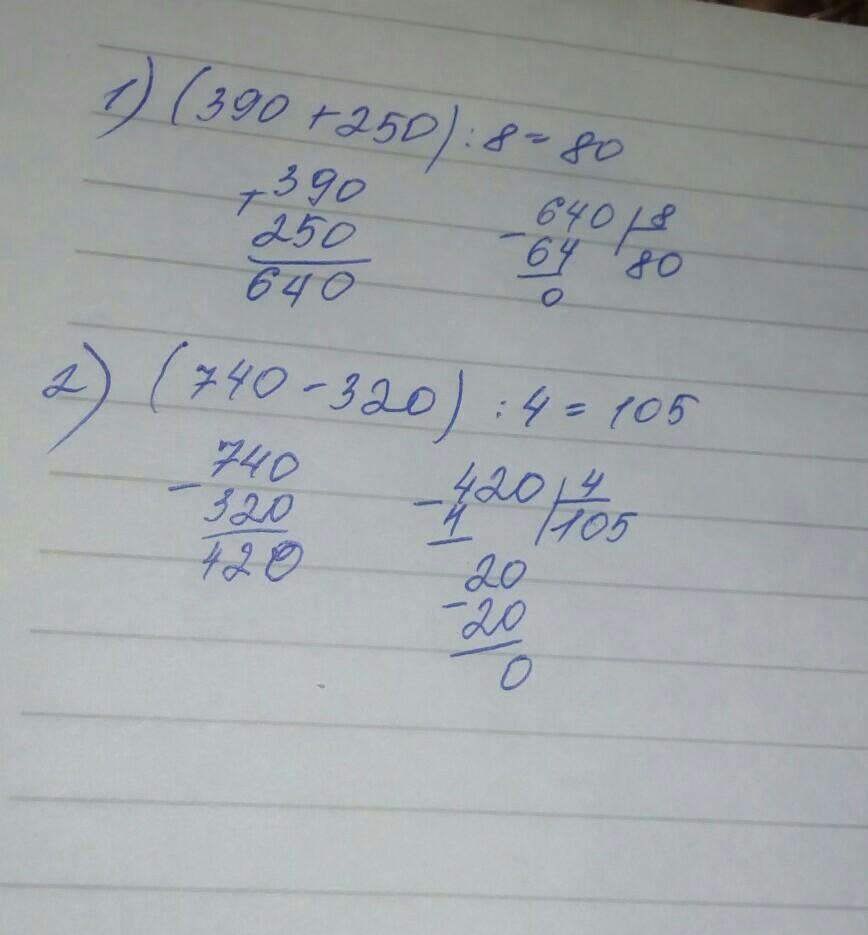 1) (390 + 250) : 8 = 80
+ 390
250
640
- 640 | 8
64 | 80
0
2) (740 - 320) : 4 = 105
- 740
320
420
- 420 | 4
4 | 105
20
- 20
0